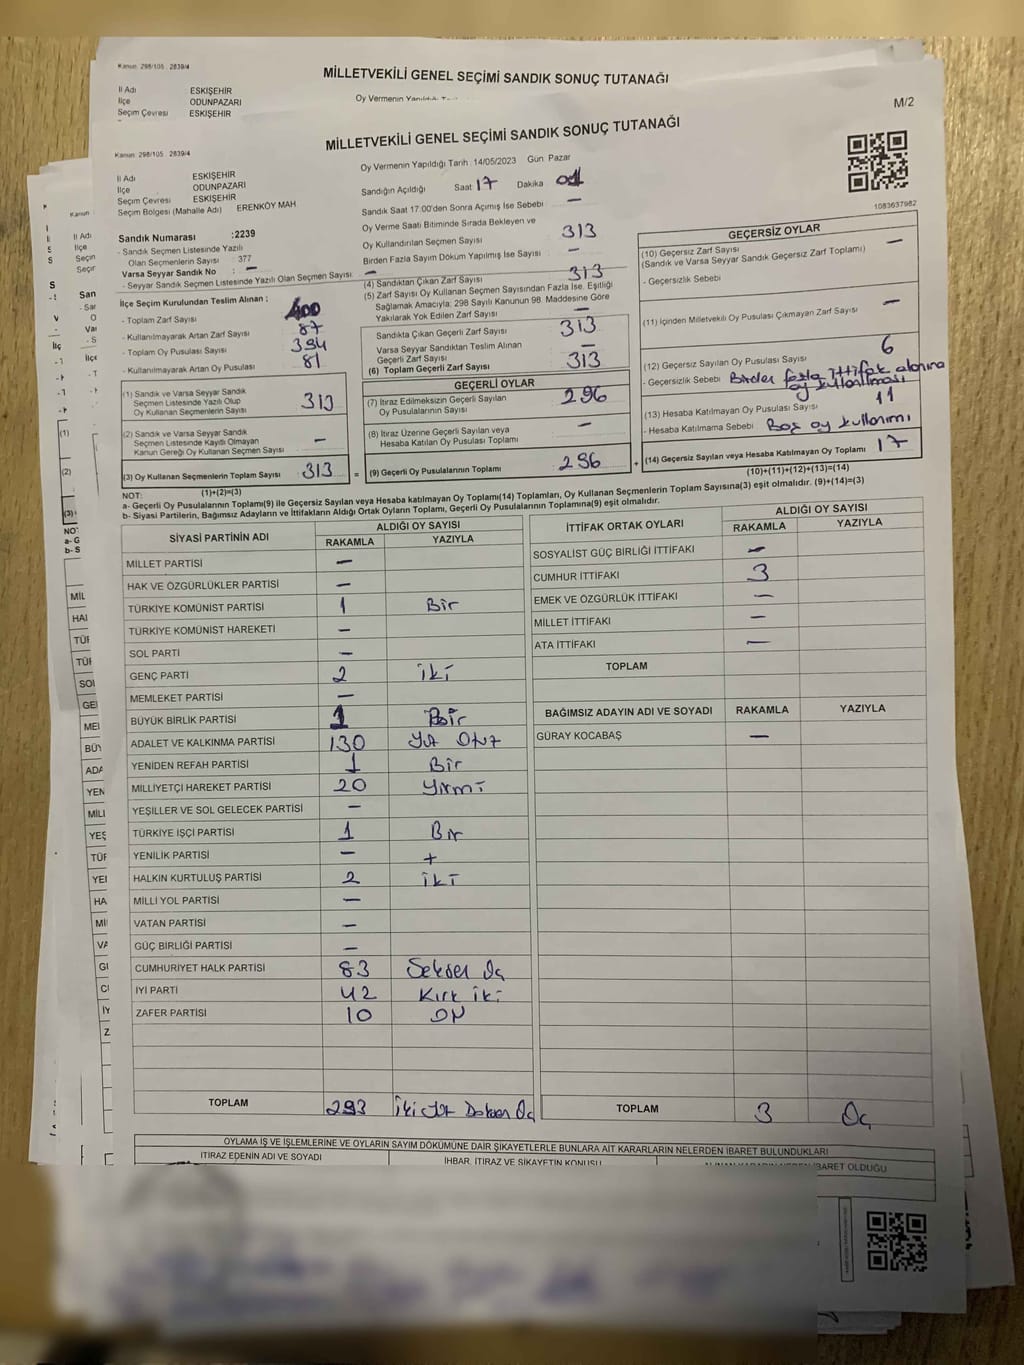 Kanun: 298/105 : 2839/4
MİLLETVEKİLİ GENEL SEÇİMİ SANDIK SONUÇ TUTANAĞI
İl Adı ESKİŞEHİR
İlçe ODUNPAZARI
Seçim Çevresi ESKİŞEHİR
Oy Vermenin
M/2
Kanun: 298/105 : 2839/4
MİLLETVEKİLİ GENEL SEÇİMİ SANDIK SONUÇ TUTANAĞI
İl Adı ESKİŞEHİR
İlçe ODUNPAZARI
Seçim Çevresi ESKİŞEHİR
Seçim Bölgesi (Mahalle Adı) ERENKÖY MAH
Oy Vermenin Yapıldığı Tarih : 14/05/2023 Gün: Pazar
Sandığın Açıldığı Saat 17 Dakika 01
Sandık Saat 17.00'den Sonra Açımış İse Sebebi : —
Oy Verme Saati Bitiminde Sırada Bekleyen ve
Oy Kullandırılan Seçmen Sayısı 313
Birden Fazla Sayım Döküm Yapılmış İse Sayısı : —
1083637982
Sandık Numarası :2239
- Sandık Seçmen Listesinde Yazılı
Olan Seçmenlerin Sayısı : 377
Varsa Seyyar Sandık No : —
- Seyyar Sandık Seçmen Listesinde Yazılı Olan Seçmen Sayısı: —
İlçe Seçim Kurulundan Teslim Alınan :
- Toplam Zarf Sayısı : 400
- Kullanılmayarak Artan Zarf Sayısı : 87
- Toplam Oy Pusulası Sayısı : 394
- Kullanılmayarak Artan Oy Pusulası : 81
(1) Sandık ve Varsa Seyyar Sandık
Seçmen Listesinde Yazılı Olup
Oy Kullanan Seçmenlerin Sayısı 313
(2) Sandık ve Varsa Seyyar Sandık
Seçmen Listesinde Kayıtlı Olmayan
Kanun Gereği Oy Kullanan Seçmen Sayısı —
(3) Oy Kullanan Seçmenlerin Toplam Sayısı 313
(1)+(2)=(3)
(4) Sandıktan Çıkan Zarf Sayısı 313
(5) Zarf Sayısı Oy Kullanan Seçmen Sayısından Fazla İse, Eşitliği
Sağlamak Amacıyla; 298 Sayılı Kanunun 98. Maddesine Göre
Yakılarak Yok Edilen Zarf Sayısı —
Sandıkta Çıkan Geçerli Zarf Sayısı 313
Varsa Seyyar Sandıktan Teslim Alınan
Geçerli Zarf Sayısı —
(6) Toplam Geçerli Zarf Sayısı 313
GEÇERLİ OYLAR
(7) İtiraz Edilmeksizin Geçerli Sayılan
Oy Pusulalarının Sayısı 296
(8) İtiraz Üzerine Geçerli Sayılan veya
Hesaba Katılan Oy Pusulası Toplamı —
= (9) Geçerli Oy Pusulalarının Toplamı 296
GEÇERSİZ OYLAR
(10) Geçersiz Zarf Sayısı —
(Sandık ve Varsa Seyyar Sandık Geçersiz Zarf Toplamı)
- Geçersizlik Sebebi :
(11) İçinden Milletvekili Oy Pusulası Çıkmayan Zarf Sayısı —
(12) Geçersiz Sayılan Oy Pusulası Sayısı 6
- Geçersizlik Sebebi : Birden fazla ittifak alanına
oy kullanılması
(13) Hesaba Katılmayan Oy Pusulası Sayısı 11
- Hesaba Katılmama Sebebi : Boş oy kullanımı
+ (14) Geçersiz Sayılan veya Hesaba Katılmayan Oy Toplamı 17
(10)+(11)+(12)+(13)=(14)
NOT:
a- Geçerli Oy Pusulalarının Toplamı(9) ile Geçersiz Sayılan veya Hesaba katılmayan Oy Toplamı(14) Toplamları, Oy Kullanan Seçmenlerin Toplam Sayısına(3) eşit olmalıdır. (9)+(14)=(3)
b- Siyasi Partilerin, Bağımsız Adayların ve İttifakların Aldığı Ortak Oyların Toplamı, Geçerli Oy Pusulalarının Toplamına(9) eşit olmalıdır.
SİYASİ PARTİNİN ADI ALDIĞI OY SAYISI
RAKAMLA YAZIYLA
MİLLET PARTİSİ —
HAK VE ÖZGÜRLÜKLER PARTİSİ —
TÜRKİYE KOMÜNİST PARTİSİ 1 Bir
TÜRKİYE KOMÜNİST HAREKETİ —
SOL PARTİ —
GENÇ PARTİ 2 İki
MEMLEKET PARTİSİ —
BÜYÜK BİRLİK PARTİSİ 1 Bir
ADALET VE KALKINMA PARTİSİ 130 Yüz Otuz
YENİDEN REFAH PARTİSİ 1 Bir
MİLLİYETÇİ HAREKET PARTİSİ 20 Yirmi
YEŞİLLER VE SOL GELECEK PARTİSİ —
TÜRKİYE İŞÇİ PARTİSİ 1 Bir
YENİLİK PARTİSİ — +
HALKIN KURTULUŞ PARTİSİ 2 İki
MİLLİ YOL PARTİSİ —
VATAN PARTİSİ —
GÜÇ BİRLİĞİ PARTİSİ —
CUMHURİYET HALK PARTİSİ 83 Seksen Üç
İYİ PARTİ 42 Kırk İki
ZAFER PARTİSİ 10 ON
TOPLAM 293 İki Yüz Doksan Üç
İTTİFAK ORTAK OYLARI ALDIĞI OY SAYISI
RAKAMLA YAZIYLA
SOSYALİST GÜÇ BİRLİĞİ İTTİFAKI —
CUMHUR İTTİFAKI 3
EMEK VE ÖZGÜRLÜK İTTİFAKI —
MİLLET İTTİFAKI —
ATA İTTİFAKI —
TOPLAM
BAĞIMSIZ ADAYIN ADI VE SOYADI RAKAMLA YAZIYLA
GÜRAY KOCABAŞ —
TOPLAM 3 Üç
OYLAMA İŞ VE İŞLEMLERİNE VE OYLARIN SAYIM DÖKÜMÜNE DAİR ŞİKAYETLERLE BUNLARA AİT KARARLARIN NELERDEN İBARET BULUNDUKLARI
İTİRAZ EDENİN ADI VE SOYADI İHBAR, İTİRAZ VE ŞİKAYETİN KONUSU İBARET OLDUĞU